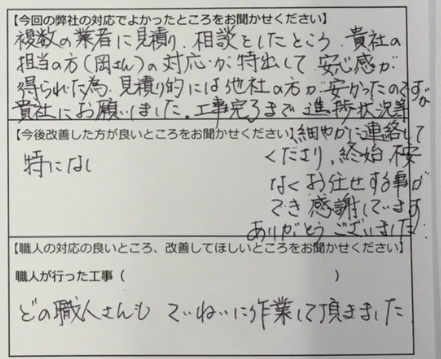 【今回の弊社の対応でよかったところをお聞かせください】
複数の業者に見積り、相談をしたところ、貴社の
担当の方(岡さん)の対応が特出して安心感が
得られた為、見積り的には他社の方が安かったのですが
貴社にお願いしました。工事完了まで進捗状況等
細やかに連絡して
くださり、終始、不安
なくお任せする事が
でき感謝しています
ありがとうございました。
【今後改善した方が良いところをお聞かせください】
特になし
【職人の対応の良いところ、改善してほしいところをお聞かせください】
職人が行った工事( )
どの職人さんも ていねいに作業して頂きました